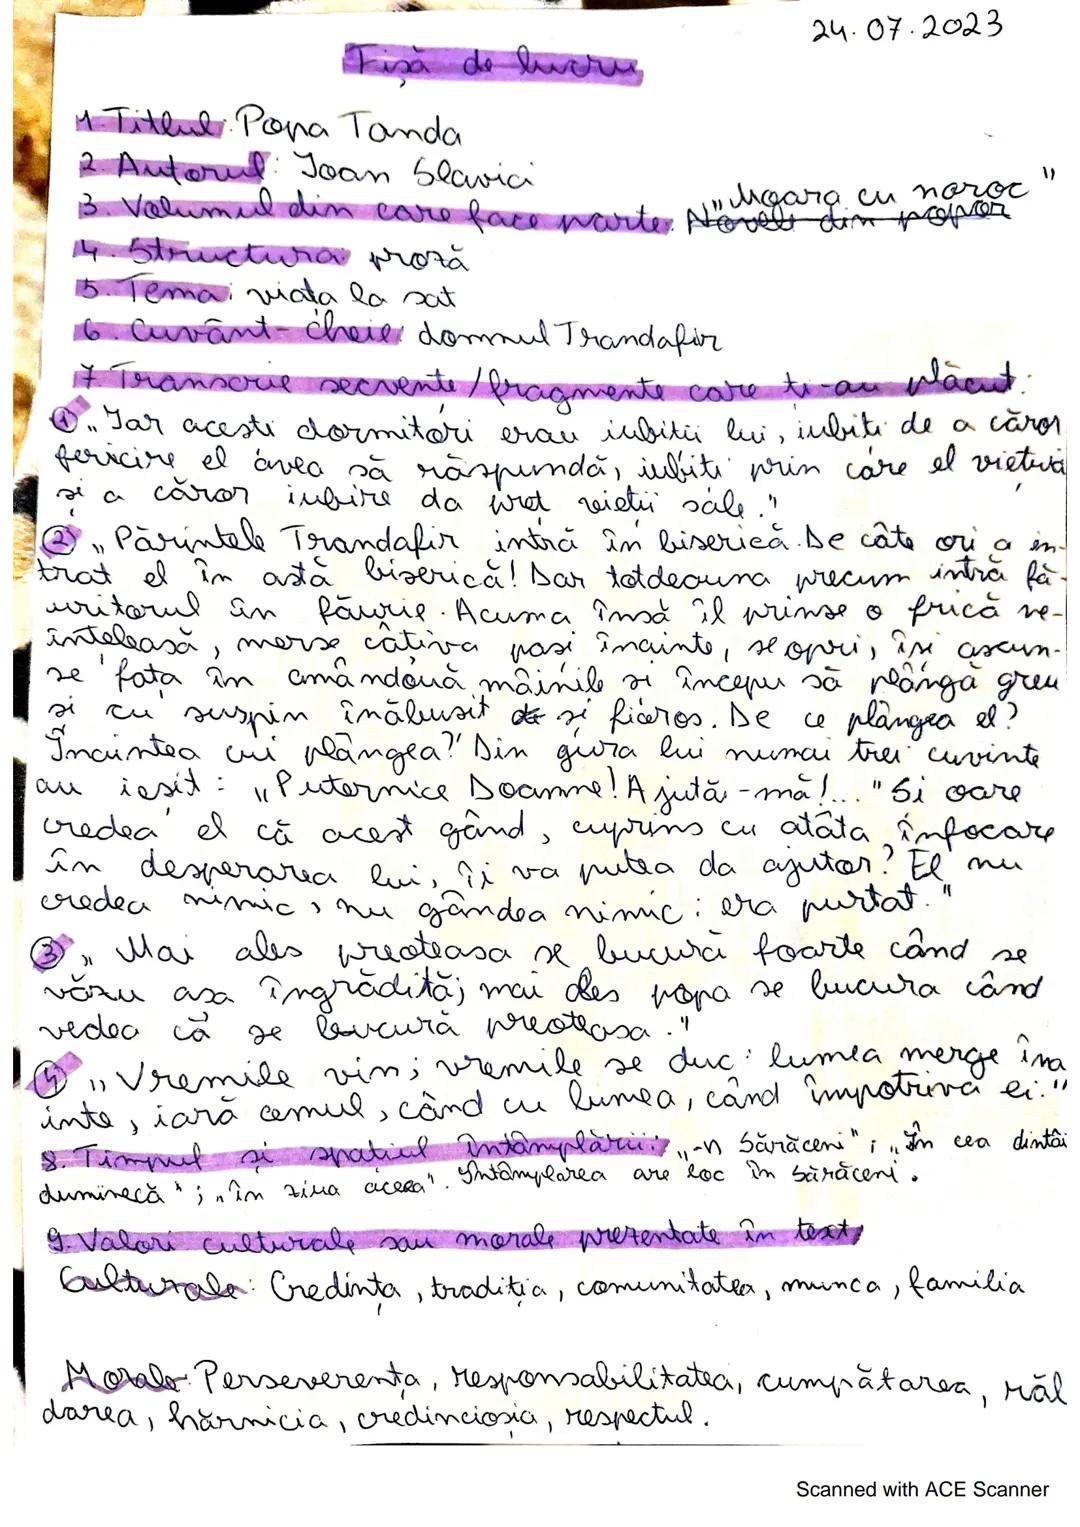 24.07.2023
Fișă de lucru
1. Titlul: Popa Tanda
2. Autorul: Ioan Slavici
3. Volumul din care face parte: Novele din popor „Moara cu noroc"
4. Structura: proză
5. Tema: viața la sat
6. Cuvânt-cheie: domnul Trandafir
7. Transcrie secvențe/fragmente care ți-au plăcut:
① „Iar acești dormitori erau iubiții lui, iubiți de a căror
fericire el avea să răspundă, iubiți prin care el viețuia
și a căror iubire da preț vieții sale."
② „Părintele Trandafir intră în biserică. De câte ori a in-
trat el în astă biserică! Dar totdeauna precum intră fă-
uritorul în făurie. Acuma însă îl prinse o frică ne-
înțeleasă, merse câțiva pași înainte, se opri, își ascun-
se fața în amândouă mâinile și începu să plângă greu
și cu suspin înăbușit de și fioros. De ce plângea el?
Înaintea cui plângea? Din gura lui numai trei cuvinte
au ieșit: „Puternice Doamne! Ajută-mă!..." Și oare
credea el că acest gând, cuprins cu atâta înfocare
în desperarea lui, îi va putea da ajutor? El nu
credea nimic, nu gândea nimic: era purtat."
③ „Mai ales preoteasa se bucură foarte când se
văzu așa îngrădită; mai ales popa se bucura când
vedea că se bucură preoteasa."
④ „Vremile vin; vremile se duc: lumea merge îna
inte, iară omul, când cu lumea, când împotriva ei."
8. Timpul și spațiul întâmplării: „-n Sărăceni"; „În cea dintâi
duminecă"; „în ziua aceea". Întâmplarea are loc în Sărăceni.
9. Valori culturale sau morale prezentate în text:
Culturale: Credința, tradiția, comunitatea, munca, familia
Morale: Perseverența, responsabilitatea, cumpătarea, răb
darea, hărnicia, credincioșia, respectul.
Scanned with ACE Scanner